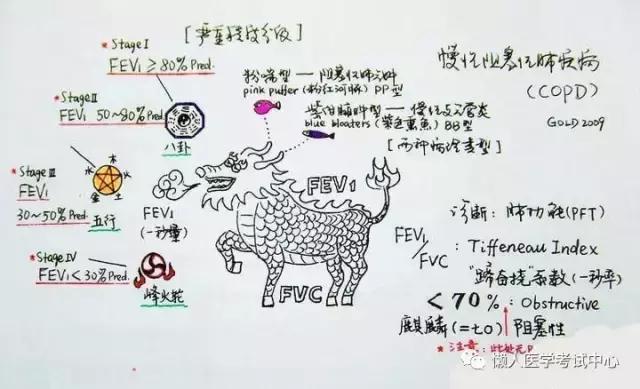 [严重程度分级]
*Stage I
FEV₁ ≥ 80% Pred.
*Stage II
FEV₁ 50~80% Pred.
八卦
*Stage III
FEV₁
30~50% Pred.
木
火
水
金
土
五行
*Stage IV
FEV₁ < 30% Pred.
烽火轮
FEV₁
(一秒量)
粉喘型 — 阻塞性肺气肿
pink puffer (粉红河豚) PP型
紫绀臃肿型 — 慢性支气管炎
blue bloaters (紫色熏鱼) BB型
[两种病理类型]
FEV₁
FVC
慢性阻塞性肺疾病
(COPD)
GOLD 2009
诊断: 肺功能(PFT)
FEV₁/FVC : Tiffeneau Index
"踢百挠"系数(一秒率)
< 70% : Obstructive
麒麟(=70) 阻塞性
*注意: 此处无P
懒人医学考试中心